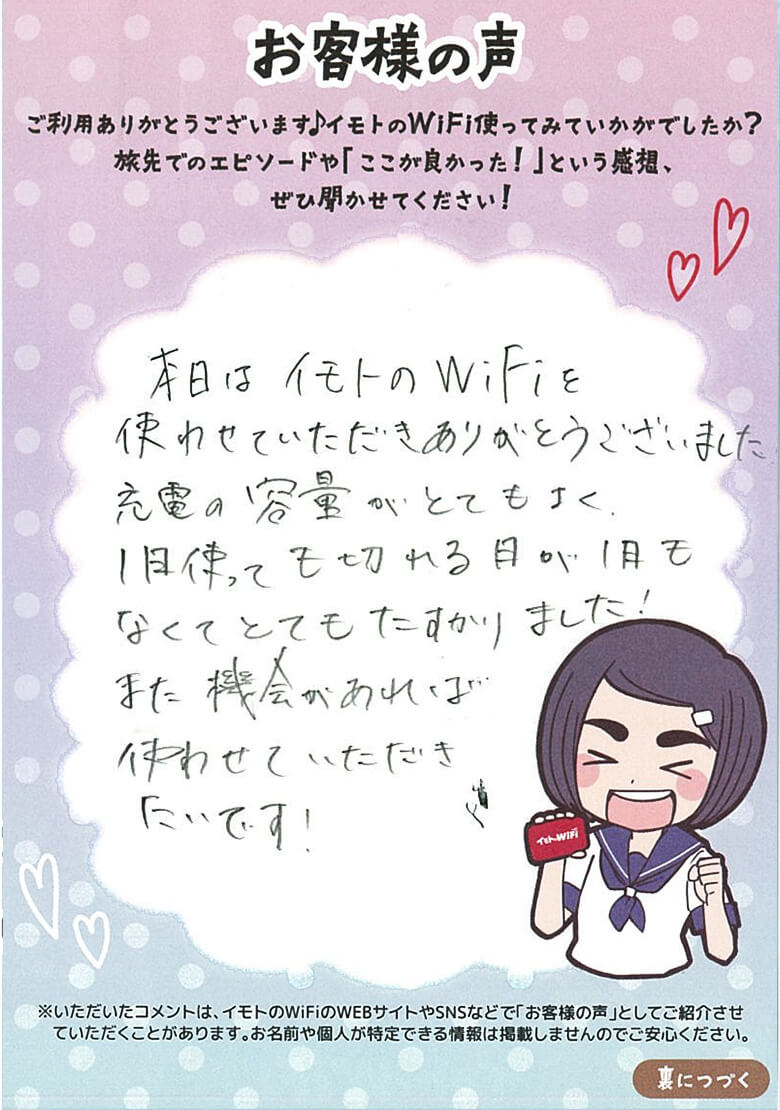 お客様の声
ご利用ありがとうございます♪イモトのWiFi使ってみていかがでしたか？
旅先でのエピソードや「ここが良かった！」という感想、
ぜひ聞かせてください！
本日は イモトの WiFiを
使わせていただきありがとうございました
充電の容量がとてもよく、
1日使っても切れる日が1日も
なくてとてもたすかりました！
また機会があれば
使わせていただき
たいです！
イモトWiFi
※いただいたコメントは、イモトのWiFiのWEBサイトやSNSなどで「お客様の声」としてご紹介させ
ていただくことがあります。お名前や個人が特定できる情報は掲載しませんのでご安心ください。
裏につづく